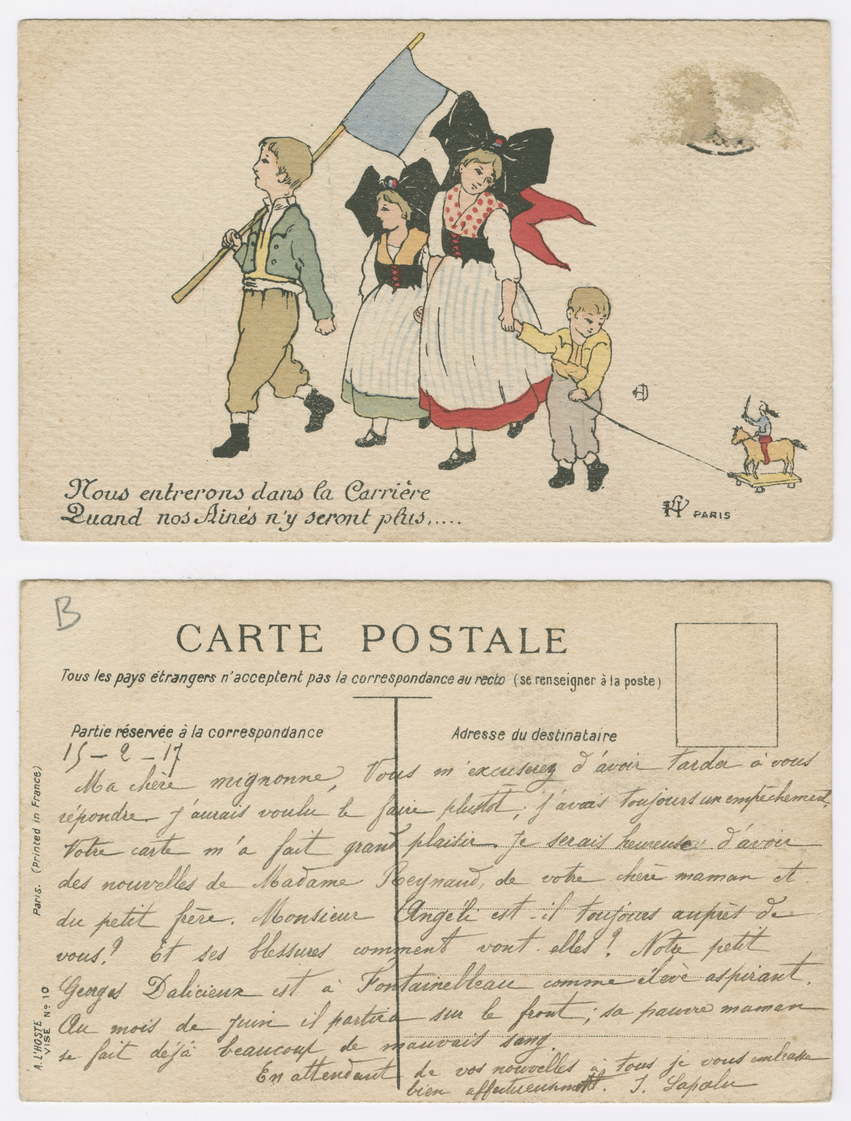 Nous entrerons dans la Carrière
Quand nos Ainés n'y seront plus,....
PARIS
B
CARTE POSTALE
Tous les pays étrangers n'acceptent pas la correspondance au recto (se renseigner à la poste)
Partie réservée à la correspondance
Adresse du destinataire
15-2-17
Ma chère mignonne, Vous m'excuserez d'avoir tarder à vous
répondre j'aurais voulu le faire plustôt; j'avais toujours un empêchement.
Votre carte m'a fait grand plaisir. Je serais heureuse d'avoir
des nouvelles de Madame Reynaud, de votre chère maman et
du petit frère. Monsieur Angéli est-il toujours auprès de
vous? Et ses blessures comment vont-elles? Notre petit
Georges Dalicieux est à Fontainebleau comme élève aspirant.
Au mois de Juin il partira sur le front; sa pauvre maman
se fait déjà beaucoup de mauvais sang.
En attendant de vos nouvelles à tous je vous embrasse
bien affectueusement. J. Lapalu
A. L'HOSTE Paris. (Printed in France)
VISÉ No 10